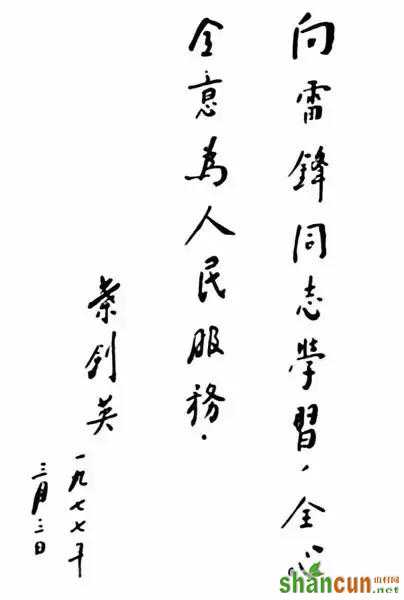 向雷鋒同志學習，全心
全意為人民服務．
葉劍英
一九七七年
三月三日
shancun 山村网
.net